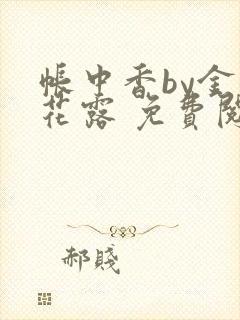 帳中香by金
花露 免費閱
郝賤